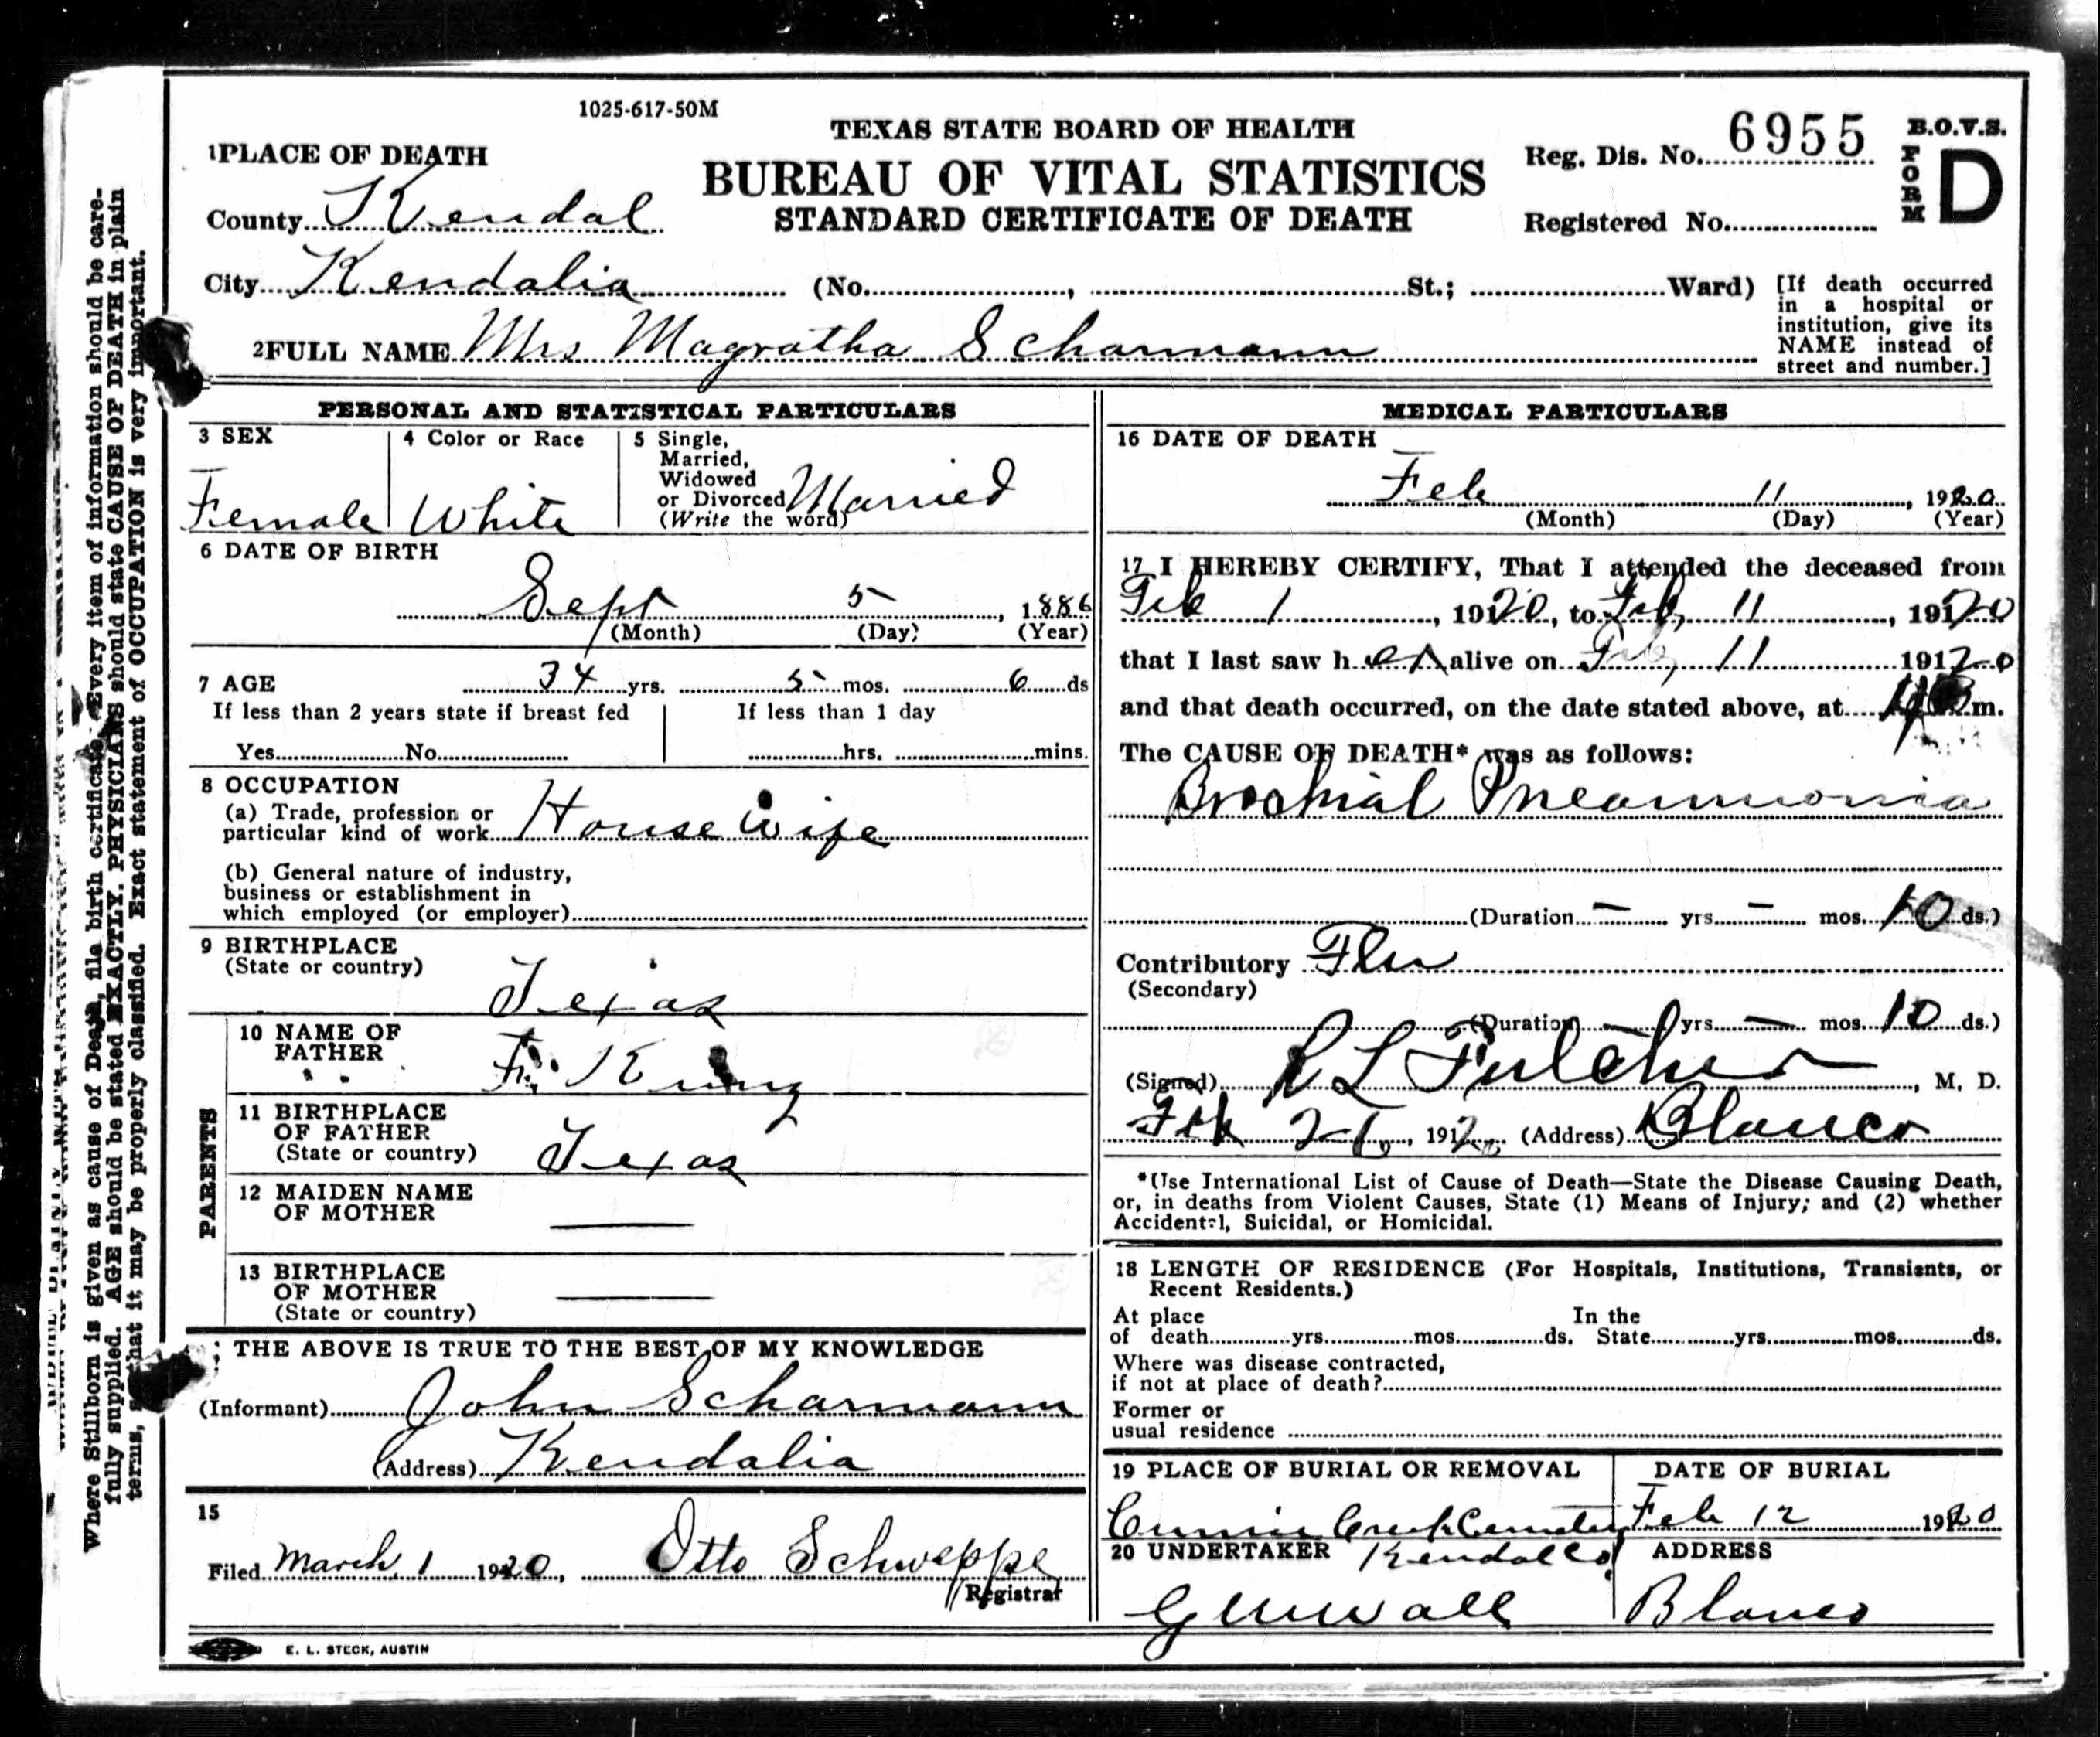 1025-617-50M
TEXAS STATE BOARD OF HEALTH
BUREAU OF VITAL STATISTICS
STANDARD CERTIFICATE OF DEATH
Reg. Dis. No. 6955
Registered No.
B.O.V.S.
FORM D
1 PLACE OF DEATH
County Kendal
City Kendalia (No. , St.; Ward)
[If death occurred
in a hospital or
institution, give its
NAME instead of
street and number.]
2 FULL NAME Mrs Magratha Scharmann
PERSONAL AND STATISTICAL PARTICULARS
3 SEX
Female
4 Color or Race
White
5 Single,
Married,
Widowed
or Divorced Married
(Write the word)
6 DATE OF BIRTH
Sept 5, 1886
(Month) (Day) (Year)
7 AGE 34 yrs. 5 mos. 6 ds
If less than 2 years state if breast fed
Yes No
If less than 1 day
hrs. mins.
8 OCCUPATION
(a) Trade, profession or
particular kind of work House wife
(b) General nature of industry,
business or establishment in
which employed (or employer)
9 BIRTHPLACE
(State or country)
Texas
PARENTS
10 NAME OF
FATHER F.
11 BIRTHPLACE
OF FATHER
(State or country) Texas
12 MAIDEN NAME
OF MOTHER
13 BIRTHPLACE
OF MOTHER
(State or country)
THE ABOVE IS TRUE TO THE BEST OF MY KNOWLEDGE
(Informant) John Scharmann
(Address) Kendalia
15
Filed March 1 1920, Otto Schweppe
Registrar
E. L. STECK, AUSTIN
MEDICAL PARTICULARS
16 DATE OF DEATH
Feb 11, 1920
(Month) (Day) (Year)
17 I HEREBY CERTIFY, That I attended the deceased from
Feb 1, 1920, to Feb, 11, 1920
that I last saw her alive on Feb, 11 1920
and that death occurred, on the date stated above, at m.
The CAUSE OF DEATH* was as follows:
Brochial Pneamnonia
(Duration — yrs — mos. 10 ds.)
Contributory Flu
(Secondary)
(Duration — yrs — mos 10 ds.)
(Signed) R L Fulcher, M. D.
Feb 26, 1920 (Address) Blanco
*Use International List of Cause of Death—State the Disease Causing Death,
or, in deaths from Violent Causes, State (1) Means of Injury; and (2) whether
Accidental, Suicidal, or Homicidal.
18 LENGTH OF RESIDENCE (For Hospitals, Institutions, Transients, or
Recent Residents.)
At place In the
of death yrs mos ds. State yrs mos ds.
Where was disease contracted,
if not at place of death?
Former or
usual residence
19 PLACE OF BURIAL OR REMOVAL
Creek Cemetery
Kendall Co.
DATE OF BURIAL
Feb 12 1920
20 UNDERTAKER
ADDRESS
Blanco
Where Stillborn is given as cause of Death, file birth certificate. Every item of information should be care-
fully supplied. AGE should be stated EXACTLY. PHYSICIANS should state CAUSE OF DEATH in plain
terms, so that it may be properly classified. Exact statement of OCCUPATION is very important.